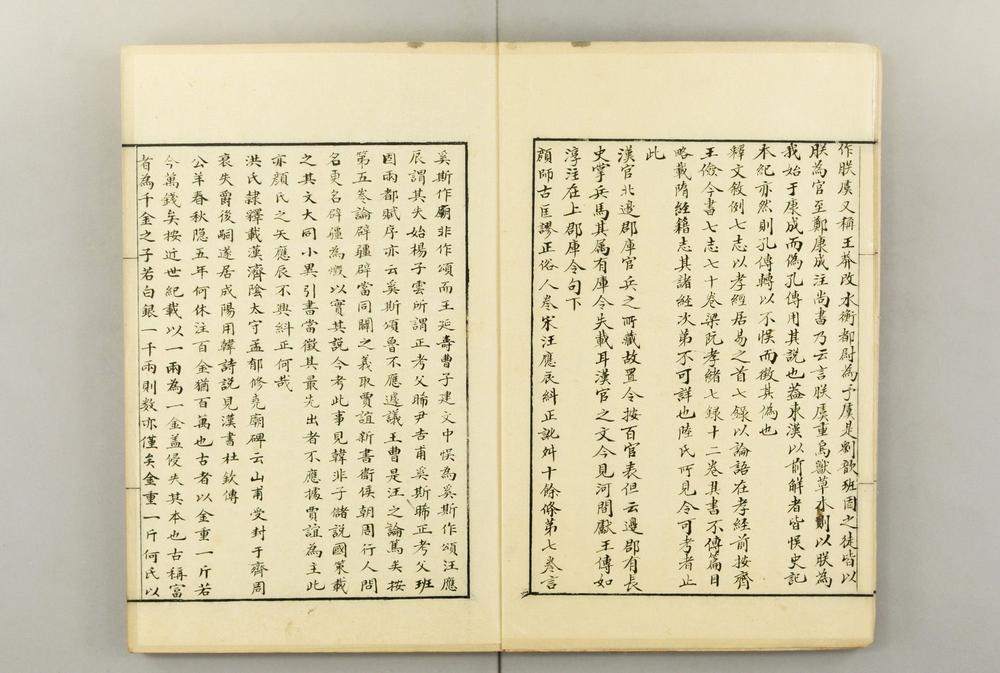 作朕虞又稱王莽改水衡都尉為予虞是劉歆班固之徒皆以
朕為官至鄭康成注尚書乃云言朕虞重鳥獸草木則以朕為
我始于康成而偽孔傳用其說也蓋東漢以前解者皆悮史記
本紀亦然則孔傳轉以不悮而徵其偽也
釋文敘例七志以孝經居易之首七錄以論語在孝經前按齊
王儉今書七志七十卷梁阮孝緒七錄十二卷其書不傳篇目
略載隋經籍志其諸經次第不可詳也陸氏所見今可考者止
此
漢官北邊郡庫官兵之所藏故置令按百官表但云邊郡有長
史掌兵馬其属有庫令失載耳漢官之文今見河間獻王傳如
淳注在上郡庫令句下
顏師古匡謬正俗八卷宋汪應辰糾正訛舛十餘條第七卷言
奚斯作廟非作頌而王延壽曹子建文中悮為奚斯作頌汪應
辰謂其失始楊子雲所謂正考父睎尹吉甫奚斯睎正考父班
固兩都賦序亦云奚斯頌魯不應遽議王曹是汪之論篤矣按
第五卷論辟疆辟當同闢之義取賈誼新書衛侯朝周行人問
名更名辟疆為燬以實其說今考此事見韓非子儲說國策載
之其文大同小異引書當徵其最先出者不應據賈誼為主此
亦顏氏之失應辰不與糾正何哉
洪氏隸釋載漢濟陰太守孟郁修堯廟碑云山甫受封于齊周
衰失爵後嗣遂居成陽用韓詩說見漢書杜欽傳
公羊春秋隐五年何休注百金猶百萬也古者以金重一斤若
今萬錢矣按近世紀載以一兩為一金蓋侵失其本也古稱富
者為千金之子若白銀一千兩則数亦僅矣金重一斤何氏以